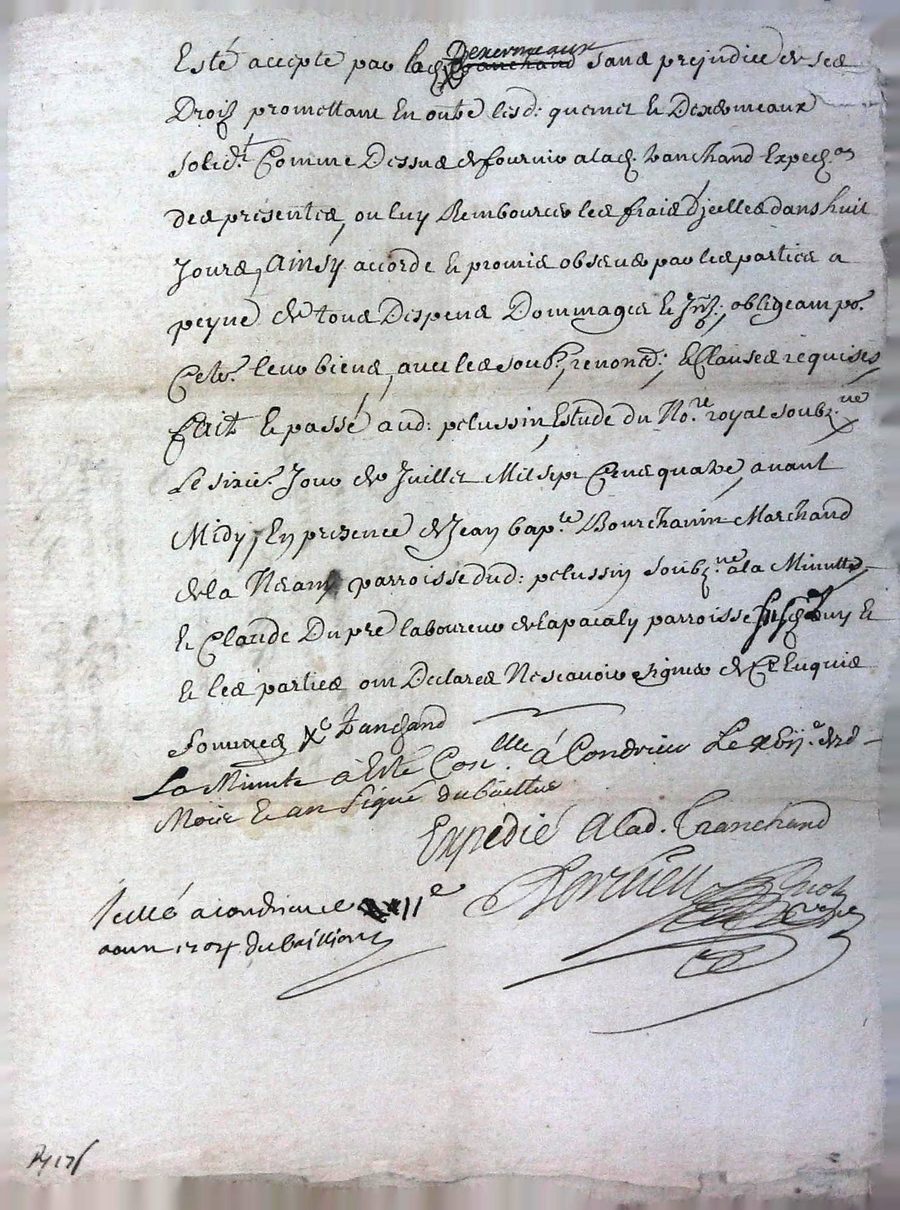 Esté accepte par lad. Dexermeaux Tranchand sans prejudice de ses
Droitz promettant En outre lesd: quemet & Dexermeaux
solidt. Comme Dessus de fournir a lad. Tranchand Expedon
des presentes, ou luy Rembourcer les frais d'jcelles dans huit
Jours, Ainsy accordé & promis observer par les parties a
peyne de tous Despens Dommages & Jntz:, obligeant por.
Cest. leur biens, avec les soub. renond: & Clauses requises
fait & passé aud: pelussin Estude du Nore royal soubzne
Le sixie. Jour de Juillet Mil sept Cens quatre, avant
Midy, En presence de Jean bapte Bourchanin Marchand
de la parroisse dud: pelussin soubzne a la Minutte
& Claude Dupré laboureur de parroisse &
& les parties ont Declarés Ne scavoir signer de Ce Enquis
sommees Xe Tranchand
La Minute à Esté Conlle. à Condrieu Le xvije dud
Mois & an Signé dubaillus
Expedié A lad. Tranchand
sellé a condrieu le
aoust 1704